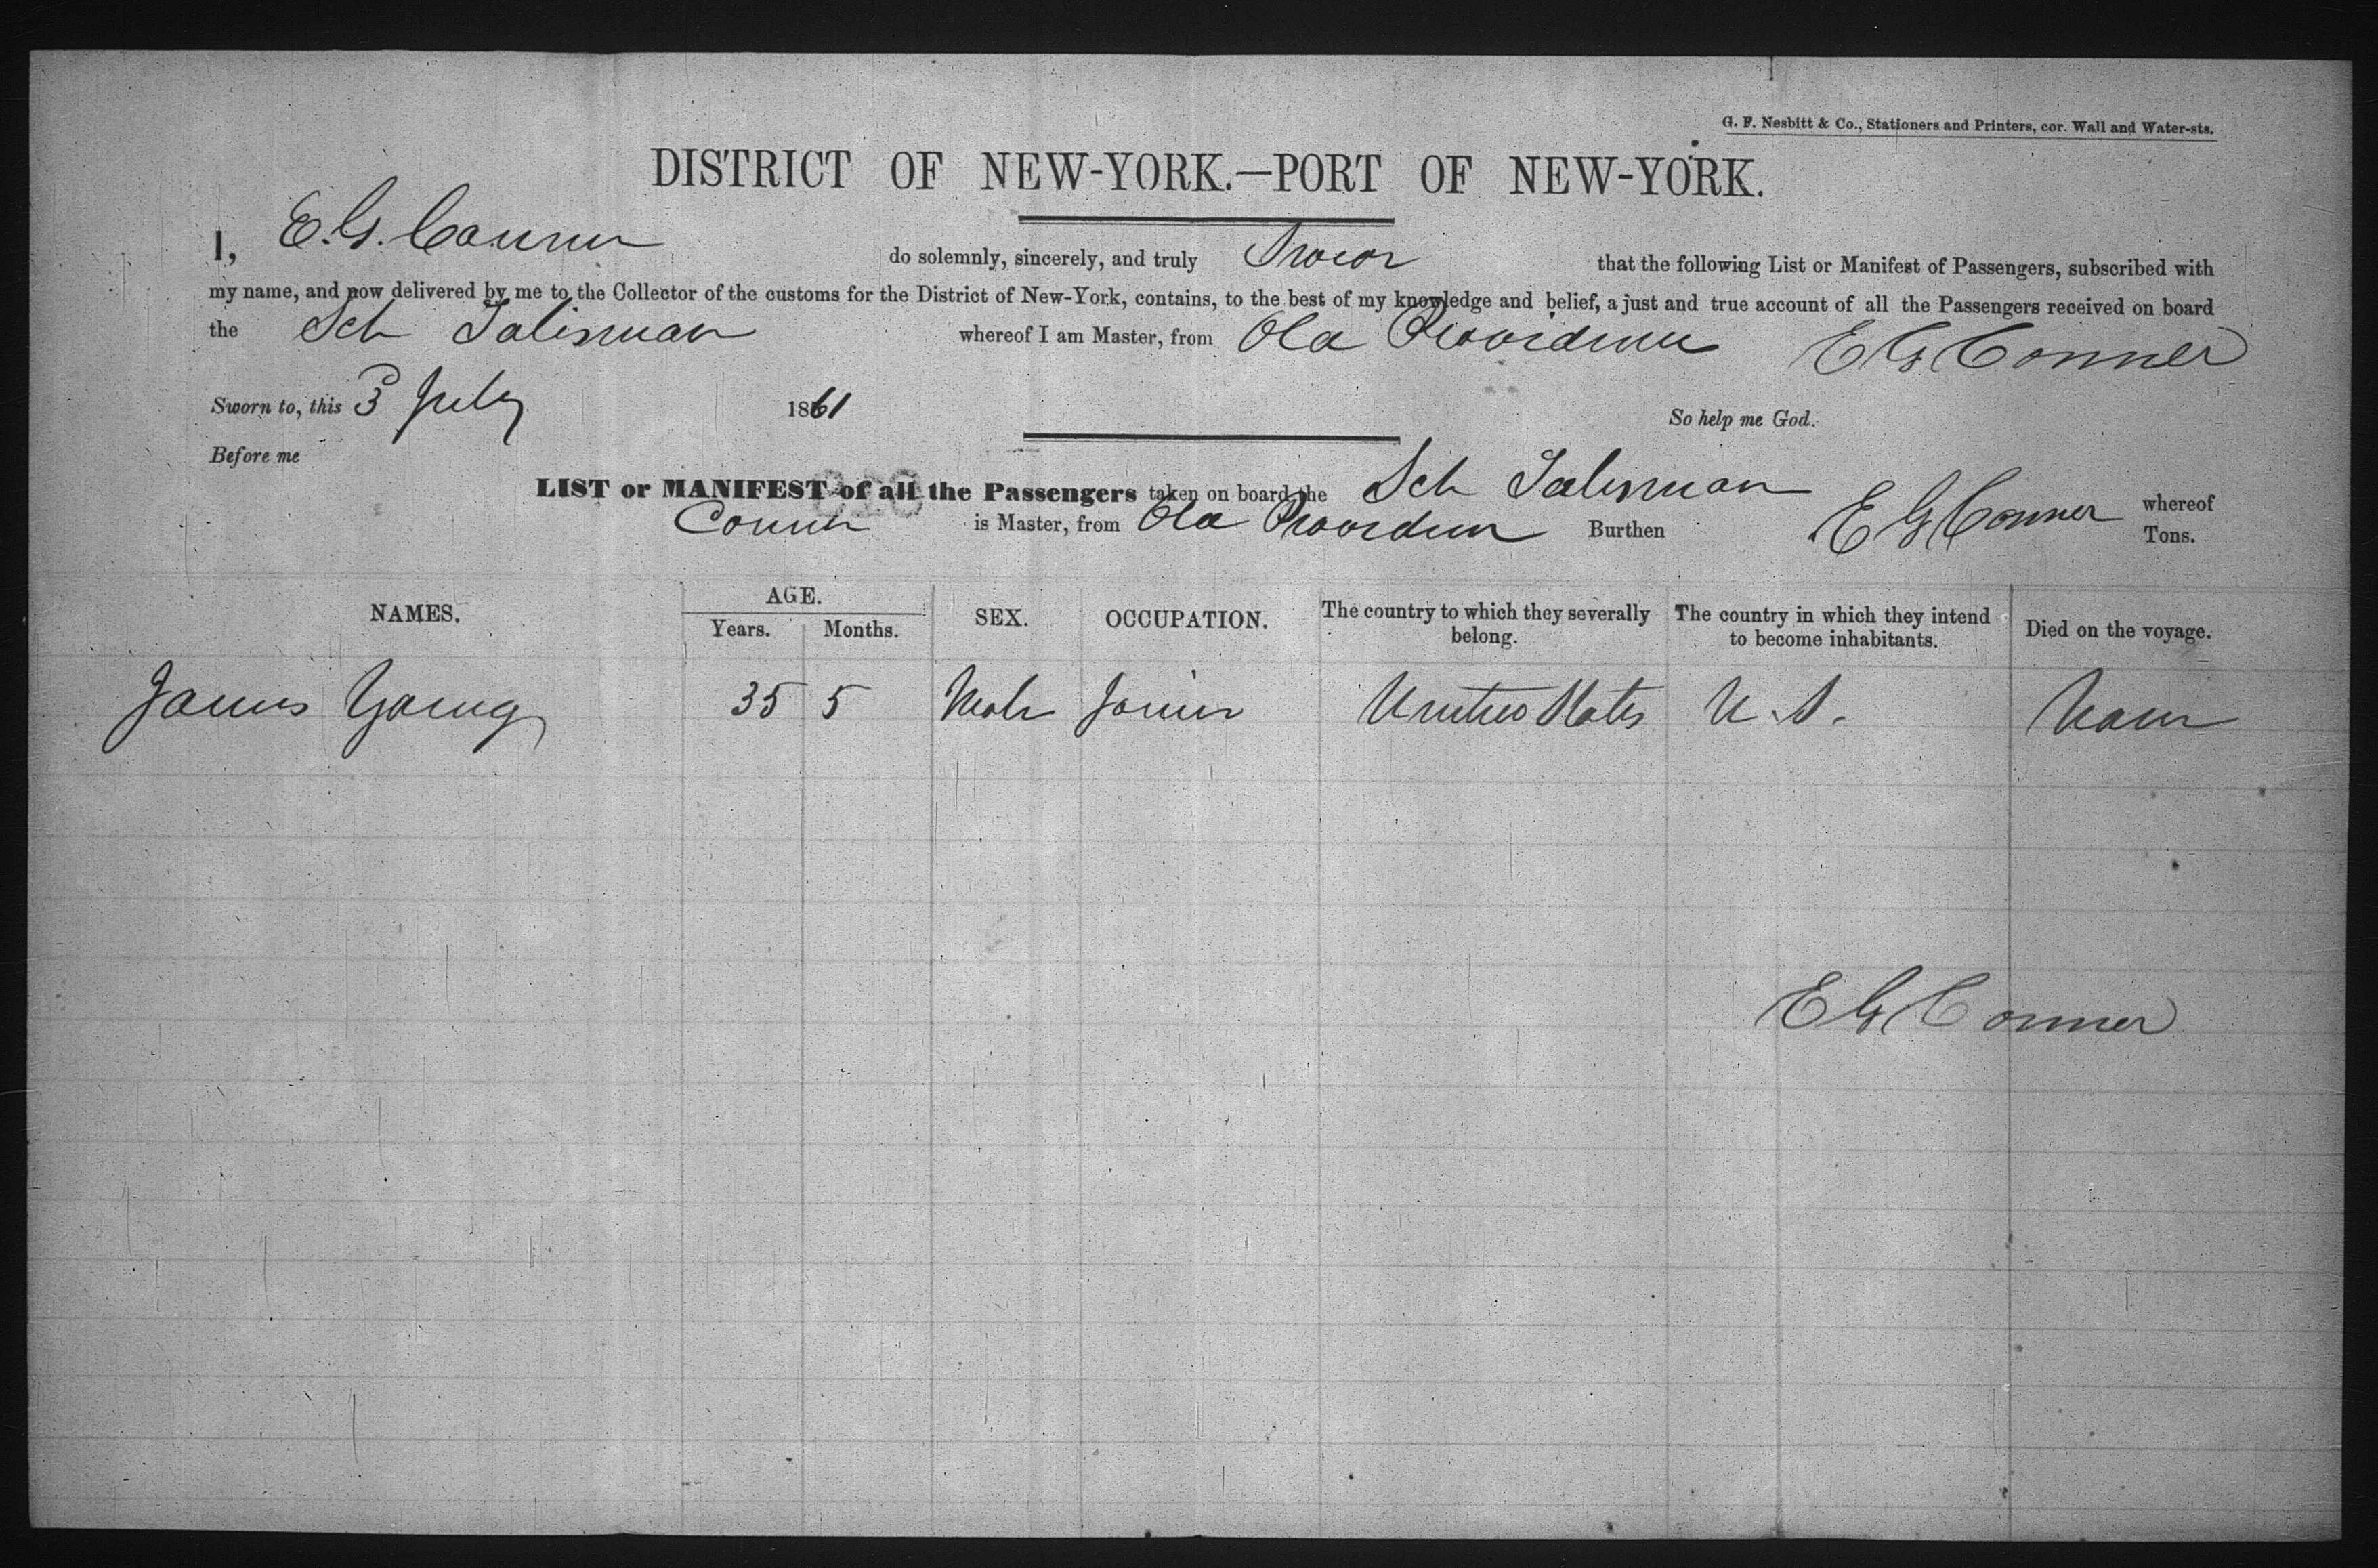 G. F. Nesbitt & Co., Stationers and Printers, cor. Wall and Water-sts.
DISTRICT OF NEW-YORK.—PORT OF NEW-YORK.
I, E. G. Conner do solemnly, sincerely, and truly Swear that the following List or Manifest of Passengers, subscribed with
my name, and now delivered by me to the Collector of the customs for the District of New-York, contains, to the best of my knowledge and belief, a just and true account of all the Passengers received on board
the Sch Talisman whereof I am Master, from Old Providence E G Conner
Sworn to, this 3 July 1861 So help me God.
Before me
LIST or MANIFEST of all the Passengers taken on board the Sch Talisman whereof
Conner is Master, from Old Providence Burthen E G Conner Tons.
NAMES. AGE. SEX. OCCUPATION. The country to which they severally belong. The country in which they intend to become inhabitants. Died on the voyage.
Years. Months.
James Young 35 5 Male Joiner United States U.S. None
E G Conner